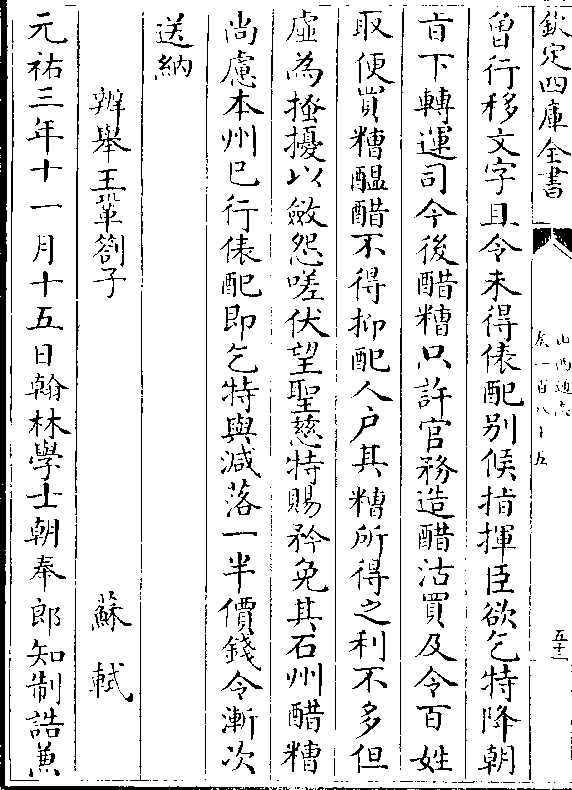 欽定四庫全書
山西通志
卷一百八十五
五十一
曾行移文字且令未得俵配别候指揮臣欲乞特降朝
㫖下轉運司今後醋糟只許官務造醋沽買及令百姓
取便買糟醖醋不得抑配人户其糟所得之利不多但
虚為掻擾以斂怨嗟伏望聖慈特賜矜免其石州醋糟
尚慮本州已行俵配即乞特與減落一半價錢令漸次
送納
辨舉王鞏劄子
蘇軾
元祐三年十一月十五日翰林學士朝奉郎知制誥兼